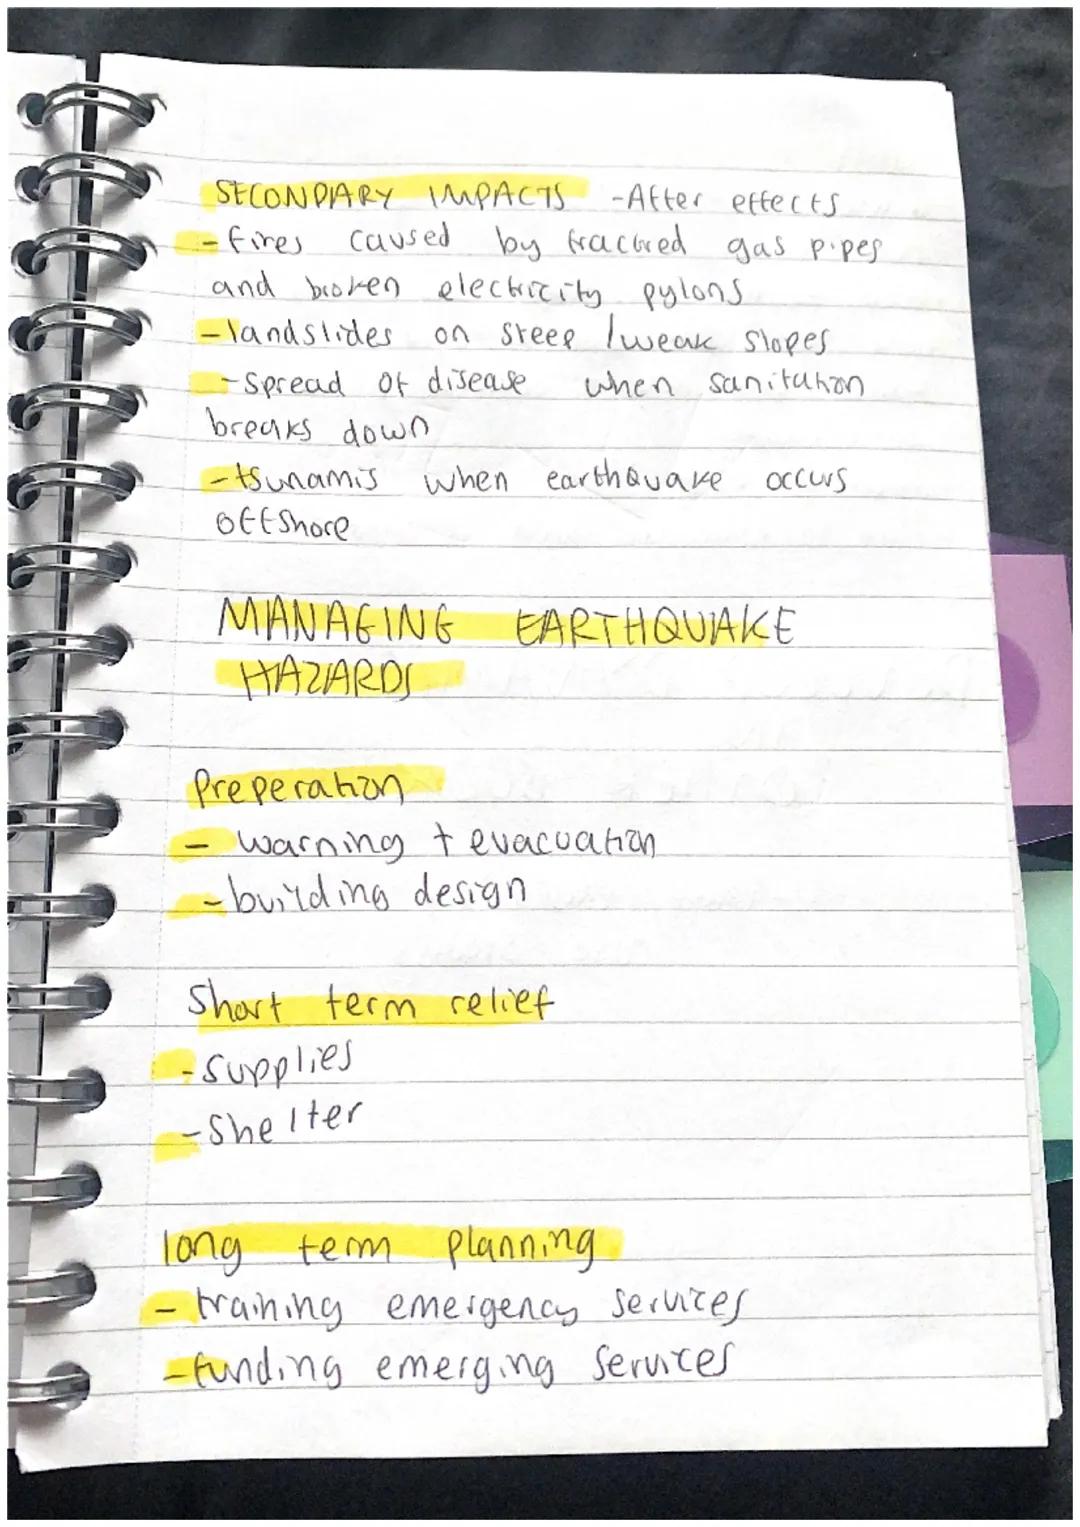 SECONDARY IMPACTS - After effects
- fires caused by fractured gas pipes
and broken electricity pylons
- landslides on steep / weak slopes
- spread of disease when sanitation
breaks down
- tsunamis when earthquake occurs
offshore
MANAGING EARTHQUAKE
HAZARDS
Preperation
- warning + evacuation
- building design
Short term relief
- supplies
- Shelter
long term planning
- training emergency services
- funding emerging services